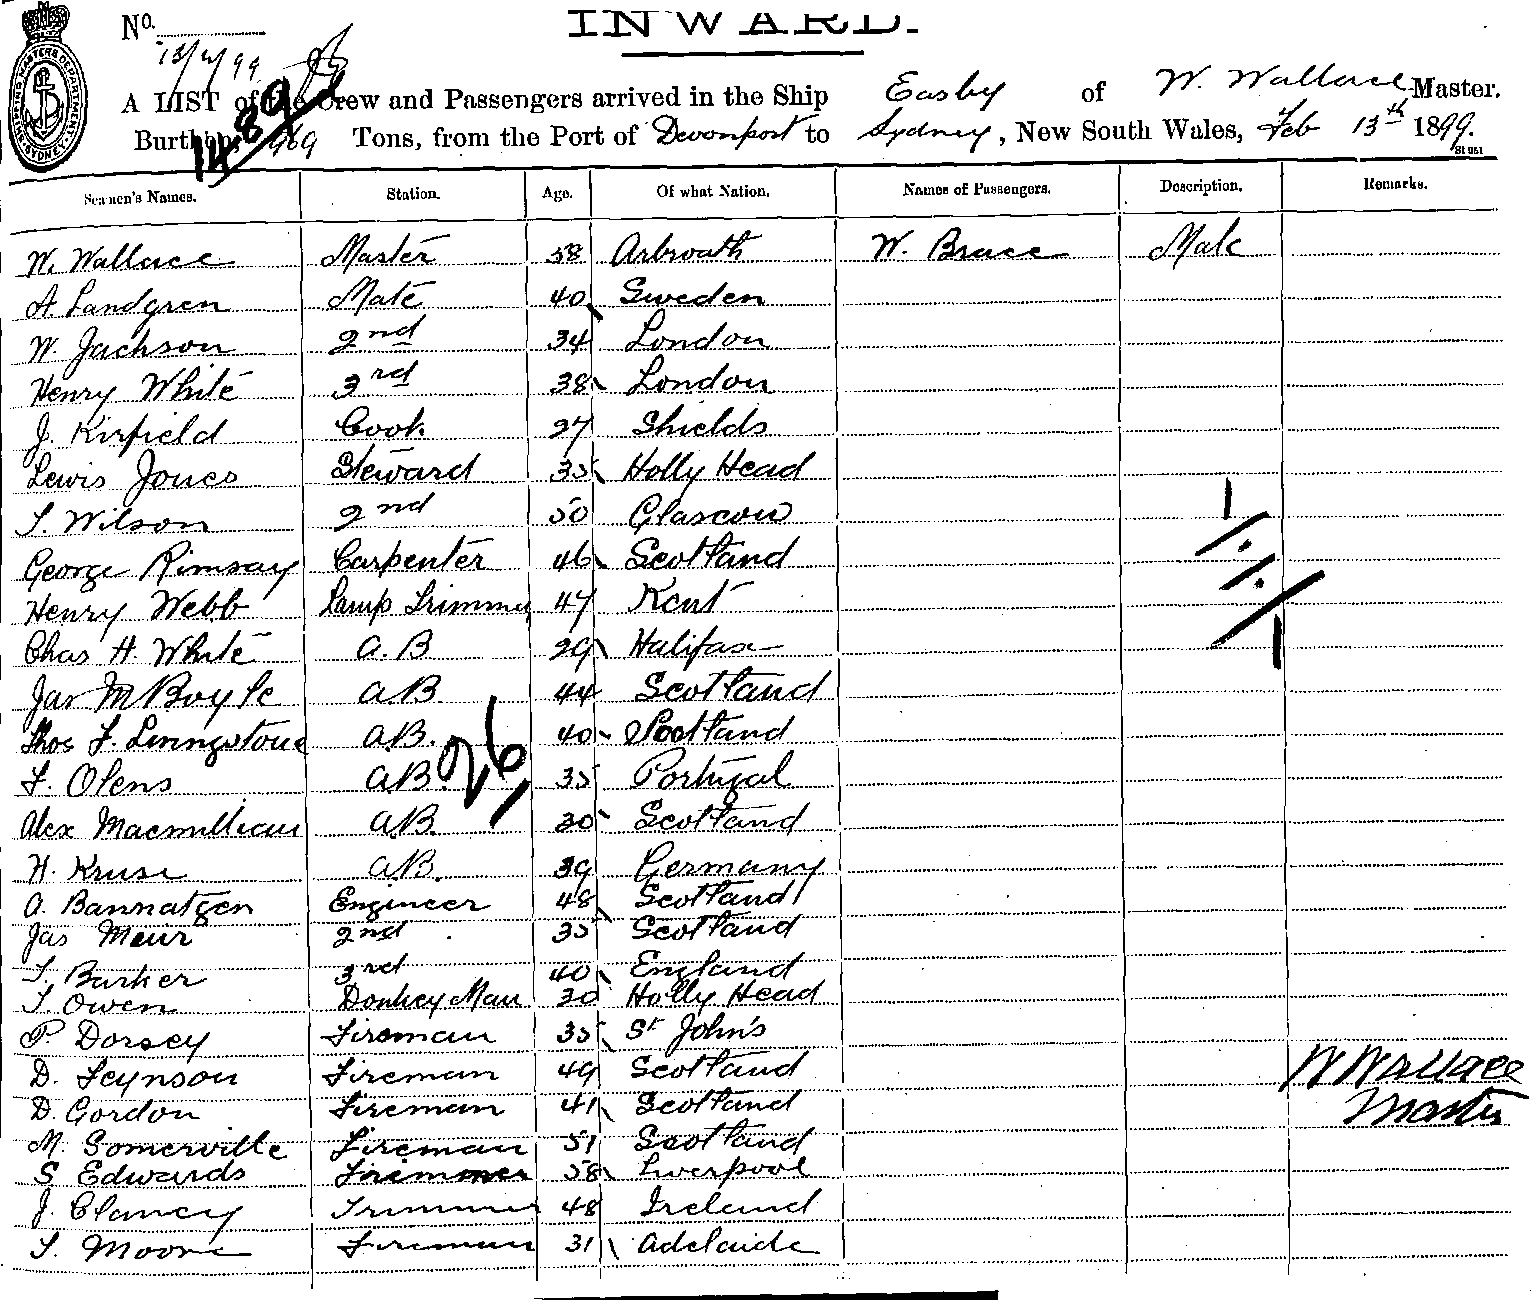 No.
INWARD.
13/2/99
A LIST of the Crew and Passengers arrived in the Ship Easby of W. Wallace Master.
Burthen 969 Tons, from the Port of Devonport to Sydney, New South Wales, Feb 13th 1899.
Seamen's Names. Station. Age. Of what Nation. Names of Passengers. Description. Remarks.
W. Wallace Master 58 Arbroath W. Bruce Male
A. Landgren Mate 40 Sweden
W. Jackson 2nd 34 London
Henry White 3rd 38 London
J. Kirfield Cook 27 Shields
Lewis Jones Steward 35 Holly Head
T. Wilson 2nd 50 Glascow
George Rimsay Carpenter 46 Scotland
Henry Webb Lamp Trimmer 47 Kent
Chas H. White A.B 29 Halifax
Jas McBoyle A.B. 44 Scotland
Thos F. Livingstone A.B. 40 Scotland
26
F. Olens A.B. 35 Portugal
Alex Macmillian A.B. 30 Scotland
H. Kruse A.B. 39 Germany
A. Bannatgen Engineer 48 Scotland
Jas Meur 2nd 35 Scotland
T. Barker 3rd 40 England
T. Owen Donkey Man 30 Holly Head
P. Dorsey Fireman 35 St John's
D. Feynson Fireman 49 Scotland
W Wallace
D. Gordon Fireman 41 Scotland
Master
M. Somerville Fireman 51 Scotland
S Edwards 58 Liverpool
J. Clancy Trimmer 48 Ireland
T. Moore Fireman 31 Adelaide